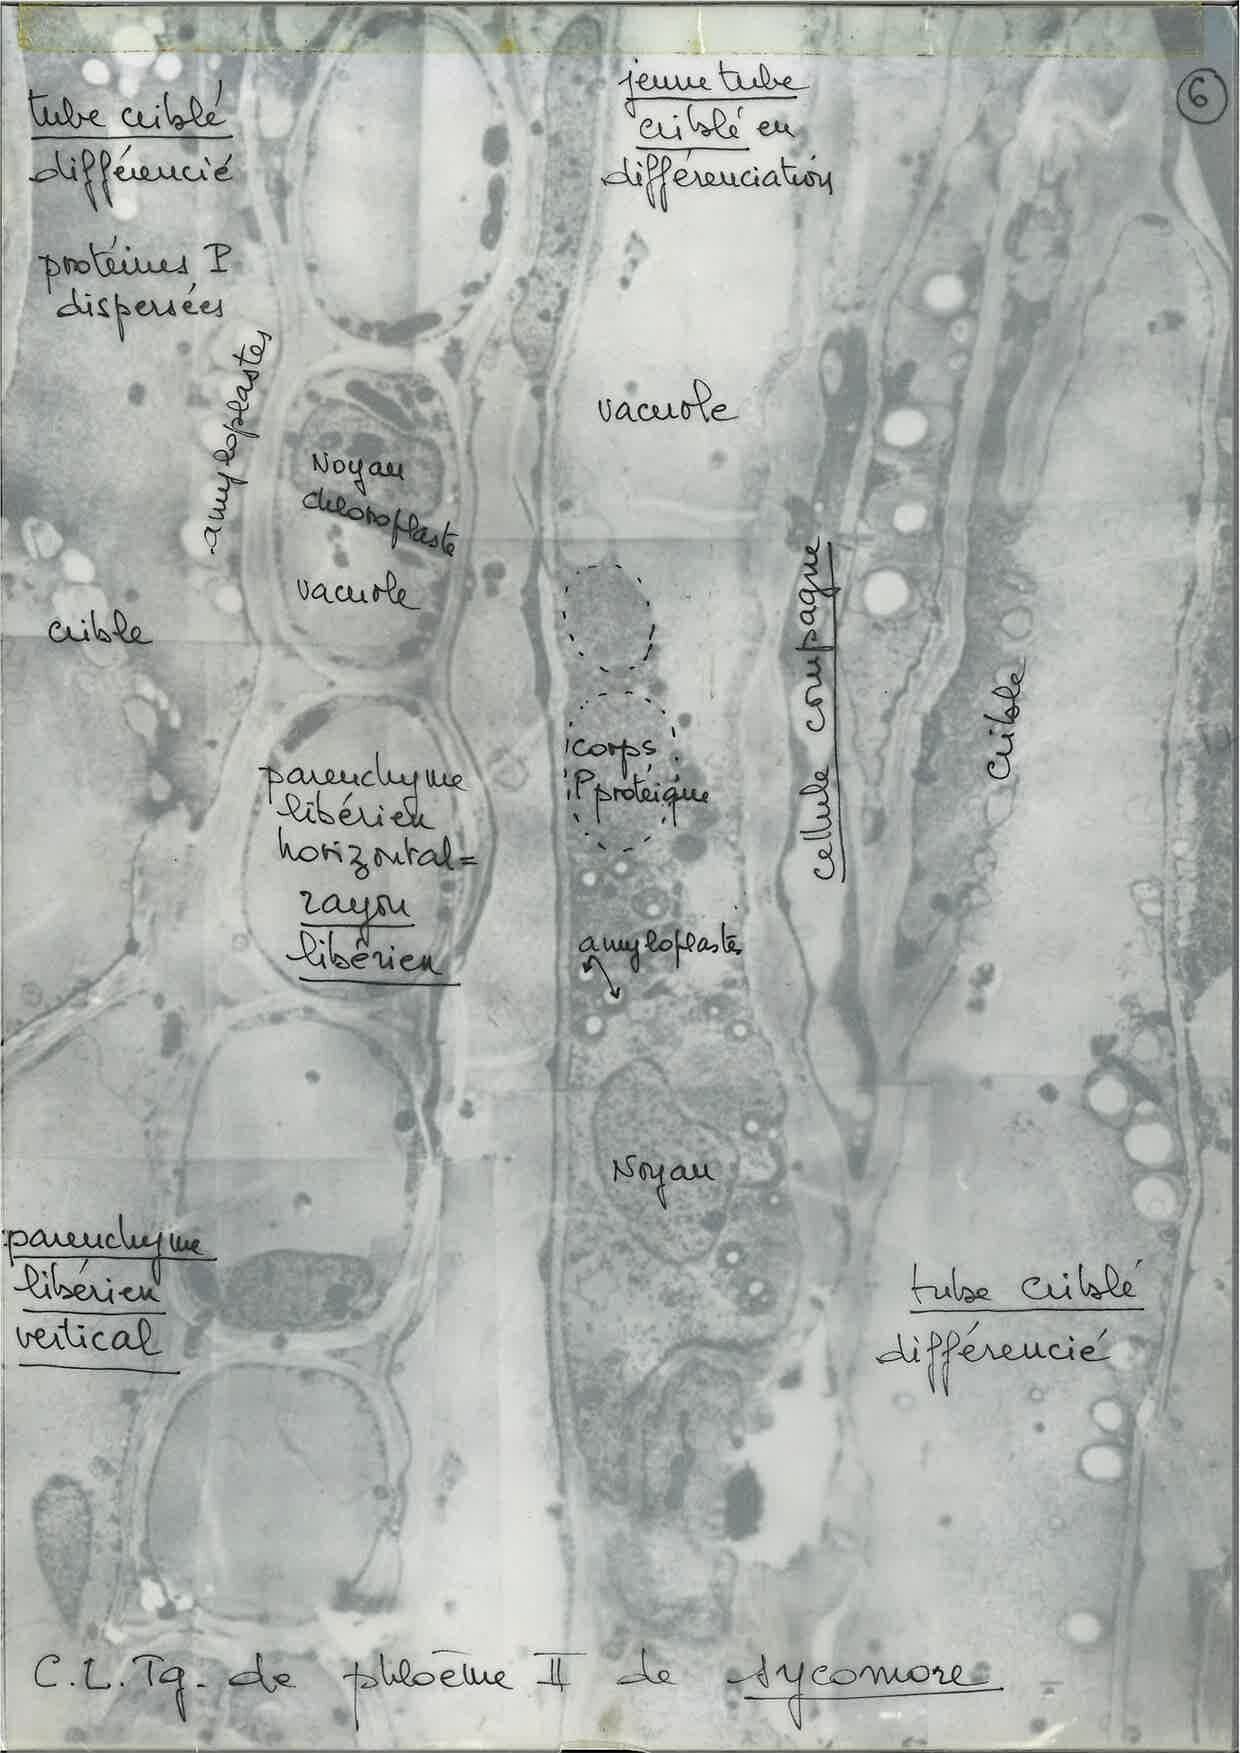 6
tube criblé
différencié
protéines P
dispersées
amyloplastes
crible
jeune tube
criblé en
différenciation
vacuole
Noyau
chloroplaste
vacuole
parenchyme
libérien
horizontal=
rayon
libérien
corps
P protéique
amyloplastes
Noyau
cellule compagne
crible
parenchyme
libérien
vertical
tube criblé
différencié
C.L.Tg. de phloème II de sycomore